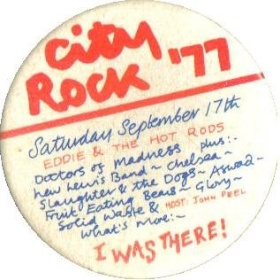 City
Rock '77
Saturday September 17th
EDDIE & THE HOT RODS
Doctors of Madness plus:-
Lew Lewis Band ~ Chelsea ~
Slaughter & the Dogs ~ Aswad ~
Fruit Eating Bears ~ Glory ~
Solid Waste & HOST: JOHN PEEL
What's More:~
I WAS THERE!